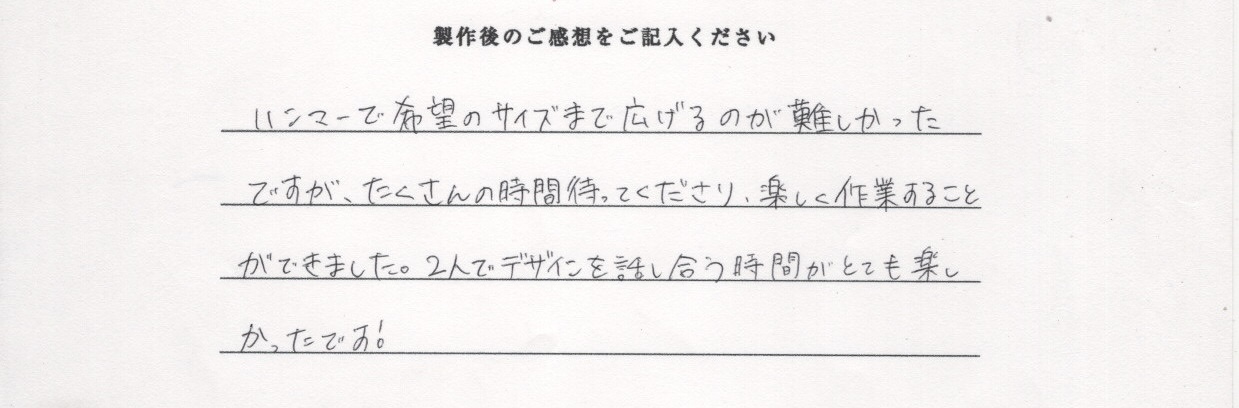 製作後のご感想をご記入ください
ハンマーで希望のサイズまで広げるのが難しかった
ですが、たくさんの時間待ってくださり、楽しく作業すること
ができました。2人でデザインを話し合う時間がとても楽し
かったです!